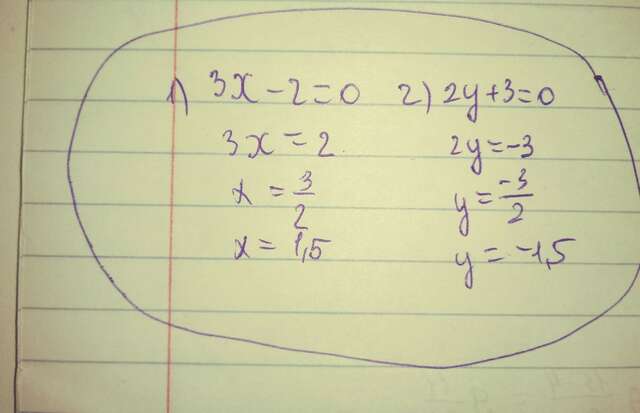 1) 3x - 2 = 0
3x = 2
x = 3/2
x = 1,5
2) 2y + 3 = 0
2y = -3
y = -3/2
y = -1,5